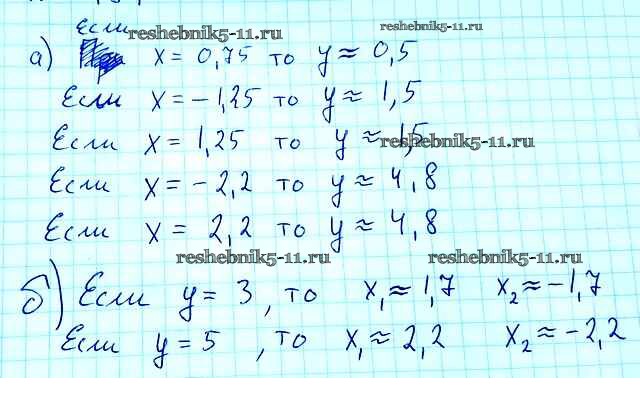 Если reshebnik5-11.ru reshebnik5-11.ru
а) x = 0,75 то y ≈ 0,5
Если x = -1,25 то y ≈ 1,5
Если x = 1,25 то y ≈ 1,5 reshebnik5-11.ru
Если x = -2,2 то y ≈ 4,8
Если x = 2,2 то y ≈ 4,8
reshebnik5-11.ru reshebnik5-11.ru
б) Если y = 3, то x₁ ≈ 1,7 x₂ ≈ -1,7
Если y = 5, то x₁ ≈ 2,2 x₂ ≈ -2,2